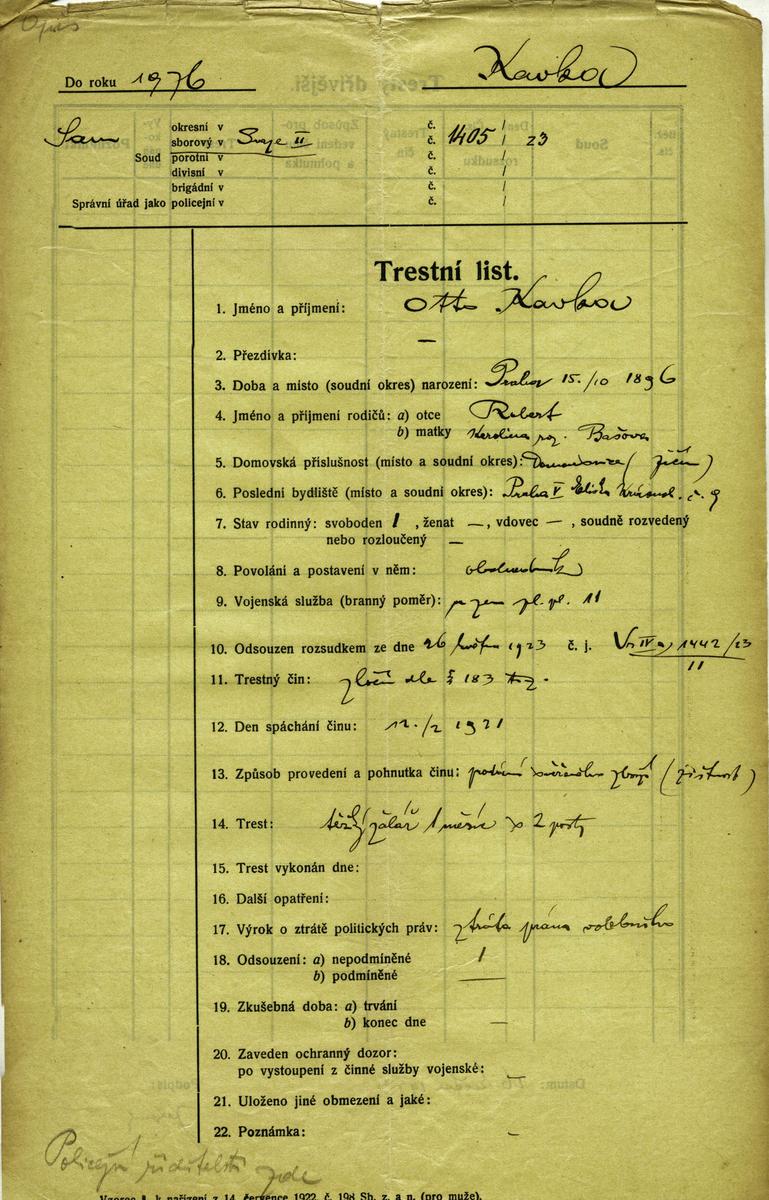 Opis
Do roku 1976 Kavka
okresní v č.
Sam sborový v Praze II č. 1405 / 23
Soud porotní v č. /
divisní v č. /
brigádní v č. /
Správní úřad jako policejní v č. /
Trestní list.
1. Jméno a příjmení: Otto Kavka
2. Přezdívka: —
3. Doba a místo (soudní okres) narození: Praha 15./10 1896
4. Jméno a příjmení rodičů: a) otce Robert
b) matky Karolina roz. Bašova
5. Domovská příslušnost (místo a soudní okres): (Jičín)
6. Poslední bydliště (místo a soudní okres): Praha V Eliška Krásnoh. č. 9
7. Stav rodinný: svoboden 1, ženat —, vdovec —, soudně rozvedený
nebo rozloučený —
8. Povolání a postavení v něm: obchodník
9. Vojenská služba (branný poměr): pl. 11
10. Odsouzen rozsudkem ze dne 26 května 1923 č. j. Vr IV a) 1442/23
11
11. Trestný čin: zločin dle § 183 tr. z.
12. Den spáchání činu: 12./2 1921
13. Způsob provedení a pohnutka činu: svěřeného zboží (zištnost)
14. Trest: těžký žalář 1 měsíc 2 posty
15. Trest vykonán dne:
16. Další opatření:
17. Výrok o ztrátě politických práv: ztráta práva volebního
18. Odsouzení: a) nepodmíněné 1
b) podmíněné —
19. Zkušebná doba: a) trvání
b) konec dne —
20. Zaveden ochranný dozor:
po vystoupení z činné služby vojenské: —
21. Uloženo jiné obmezení a jaké:
22. Poznámka: —
Policejní ředitelství zde
Vzorec k nařízení z 14. července 1922, č. 198 Sb. z. a n. (pro muže).